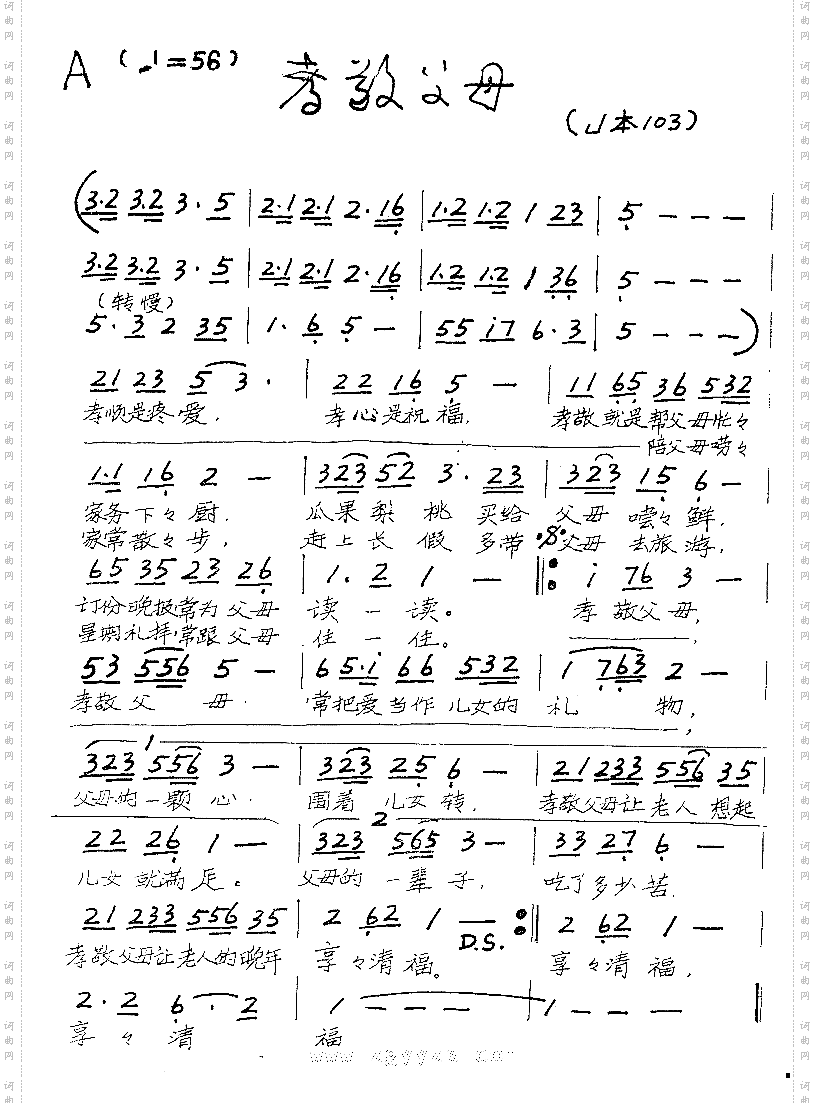 A (♩=56) 孝敬父母
(小本103)
(3·2 3·2 3· 5 | 2·1 2·1 2· 16 | 1·2 1·2 1 23 | 5 - - - |
3·2 3·2 3· 5 | 2·1 2·1 2· 16 | 1·2 1·2 1 36 | 5 - - - |
(转慢)
5· 3 2 35 | 1· 6 5 - | 55 i7 6·3 | 5 - - - ) |
21 23 5 3· | 22 16 5 - | 11 65 36 532
孝顺是疼爱, 孝心是祝福, 孝敬就是帮父母忙々
陪父母唠々
1·1 16 2 - | 323 52 3· 23 | 323 15 6 - |
家务下々厨, 瓜果梨桃买给父母嚐々鲜,
家常散々步, 赶上长假多带父母去旅游,
65 35 23 26 | 1· 2 1 - ‖: i 76 3 - |
订份晚报常为父母读一读。 孝敬父母,
星期礼拜常跟父母住一住。
53 556 5 - | 6 5·i 66 532 | 1 763 2 - |
孝敬父母 常把爱当作儿女的礼物,
1
323 556 3 - | 323 25 6 - | 21 233 556 35 |
父母的一颗心 围着儿女转, 孝敬父母让老人想起
2
22 26 1 - | 323 565 3 - | 33 27 6 - |
儿女就满足。 父母的一辈子, 吃了多少苦
21 233 556 35 | 2 62 1 — :‖ 2 62 1 - |
D.S.
孝敬父母让老人的晚年 享々清福。 享々清福,
2· 2 6· 2 | 1 - - - | 1 - - - ‖
享々清 福
词曲网